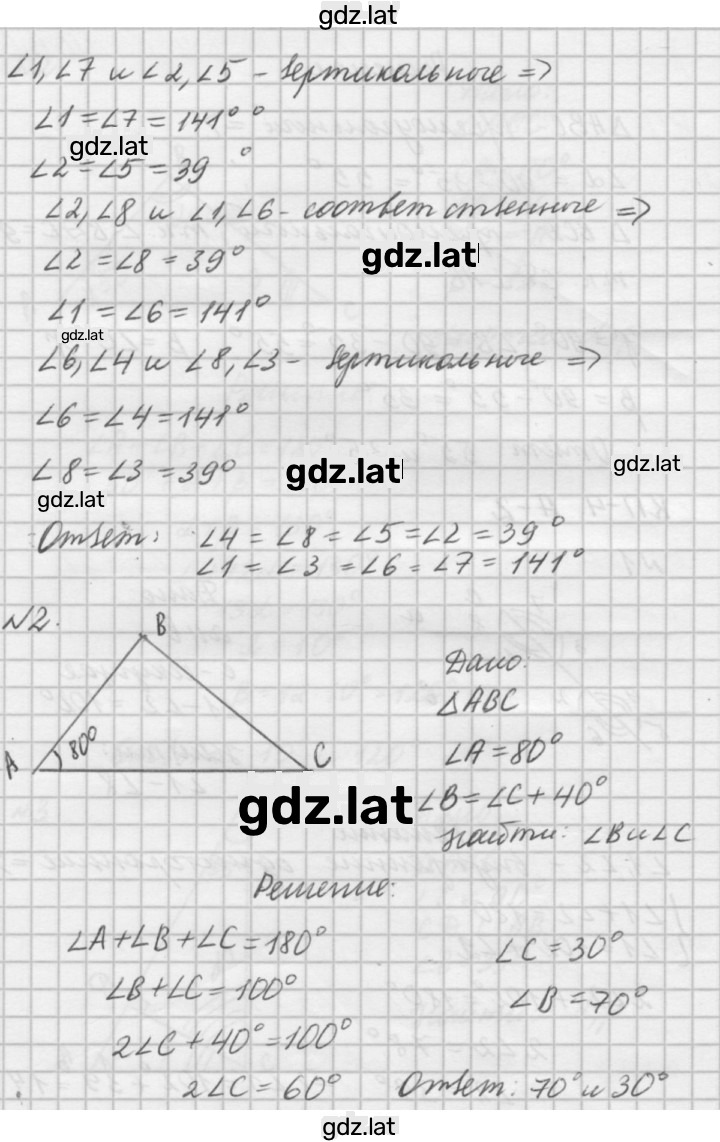 gdz.lat
∠1, ∠7 и ∠2, ∠5 - вертикольные =>
∠1 = ∠7 = 141°
gdz.lat
∠2 = ∠5 = 39°
∠2, ∠8 и ∠1, ∠6 - соответственные =>
∠2 = ∠8 = 39°
gdz.lat
∠1 = ∠6 = 141°
gdz.lat
∠6, ∠4 и ∠8, ∠3 - вертикольные =>
∠6 = ∠4 = 141°
∠8 = ∠3 = 39°
gdz.lat
gdz.lat
gdz.lat
Ответ: ∠4 = ∠8 = ∠5 = ∠2 = 39°
∠1 = ∠3 = ∠6 = ∠7 = 141°
№2.
B
A
80°
C
Дано:
△ABC
∠A = 80°
∠B = ∠C + 40°
найти: ∠B и ∠C
gdz.lat
Решение:
∠A + ∠B + ∠C = 180°
∠B + ∠C = 100°
2∠C + 40° = 100°
2∠C = 60°
∠C = 30°
∠B = 70°
Ответ: 70° и 30°
gdz.lat